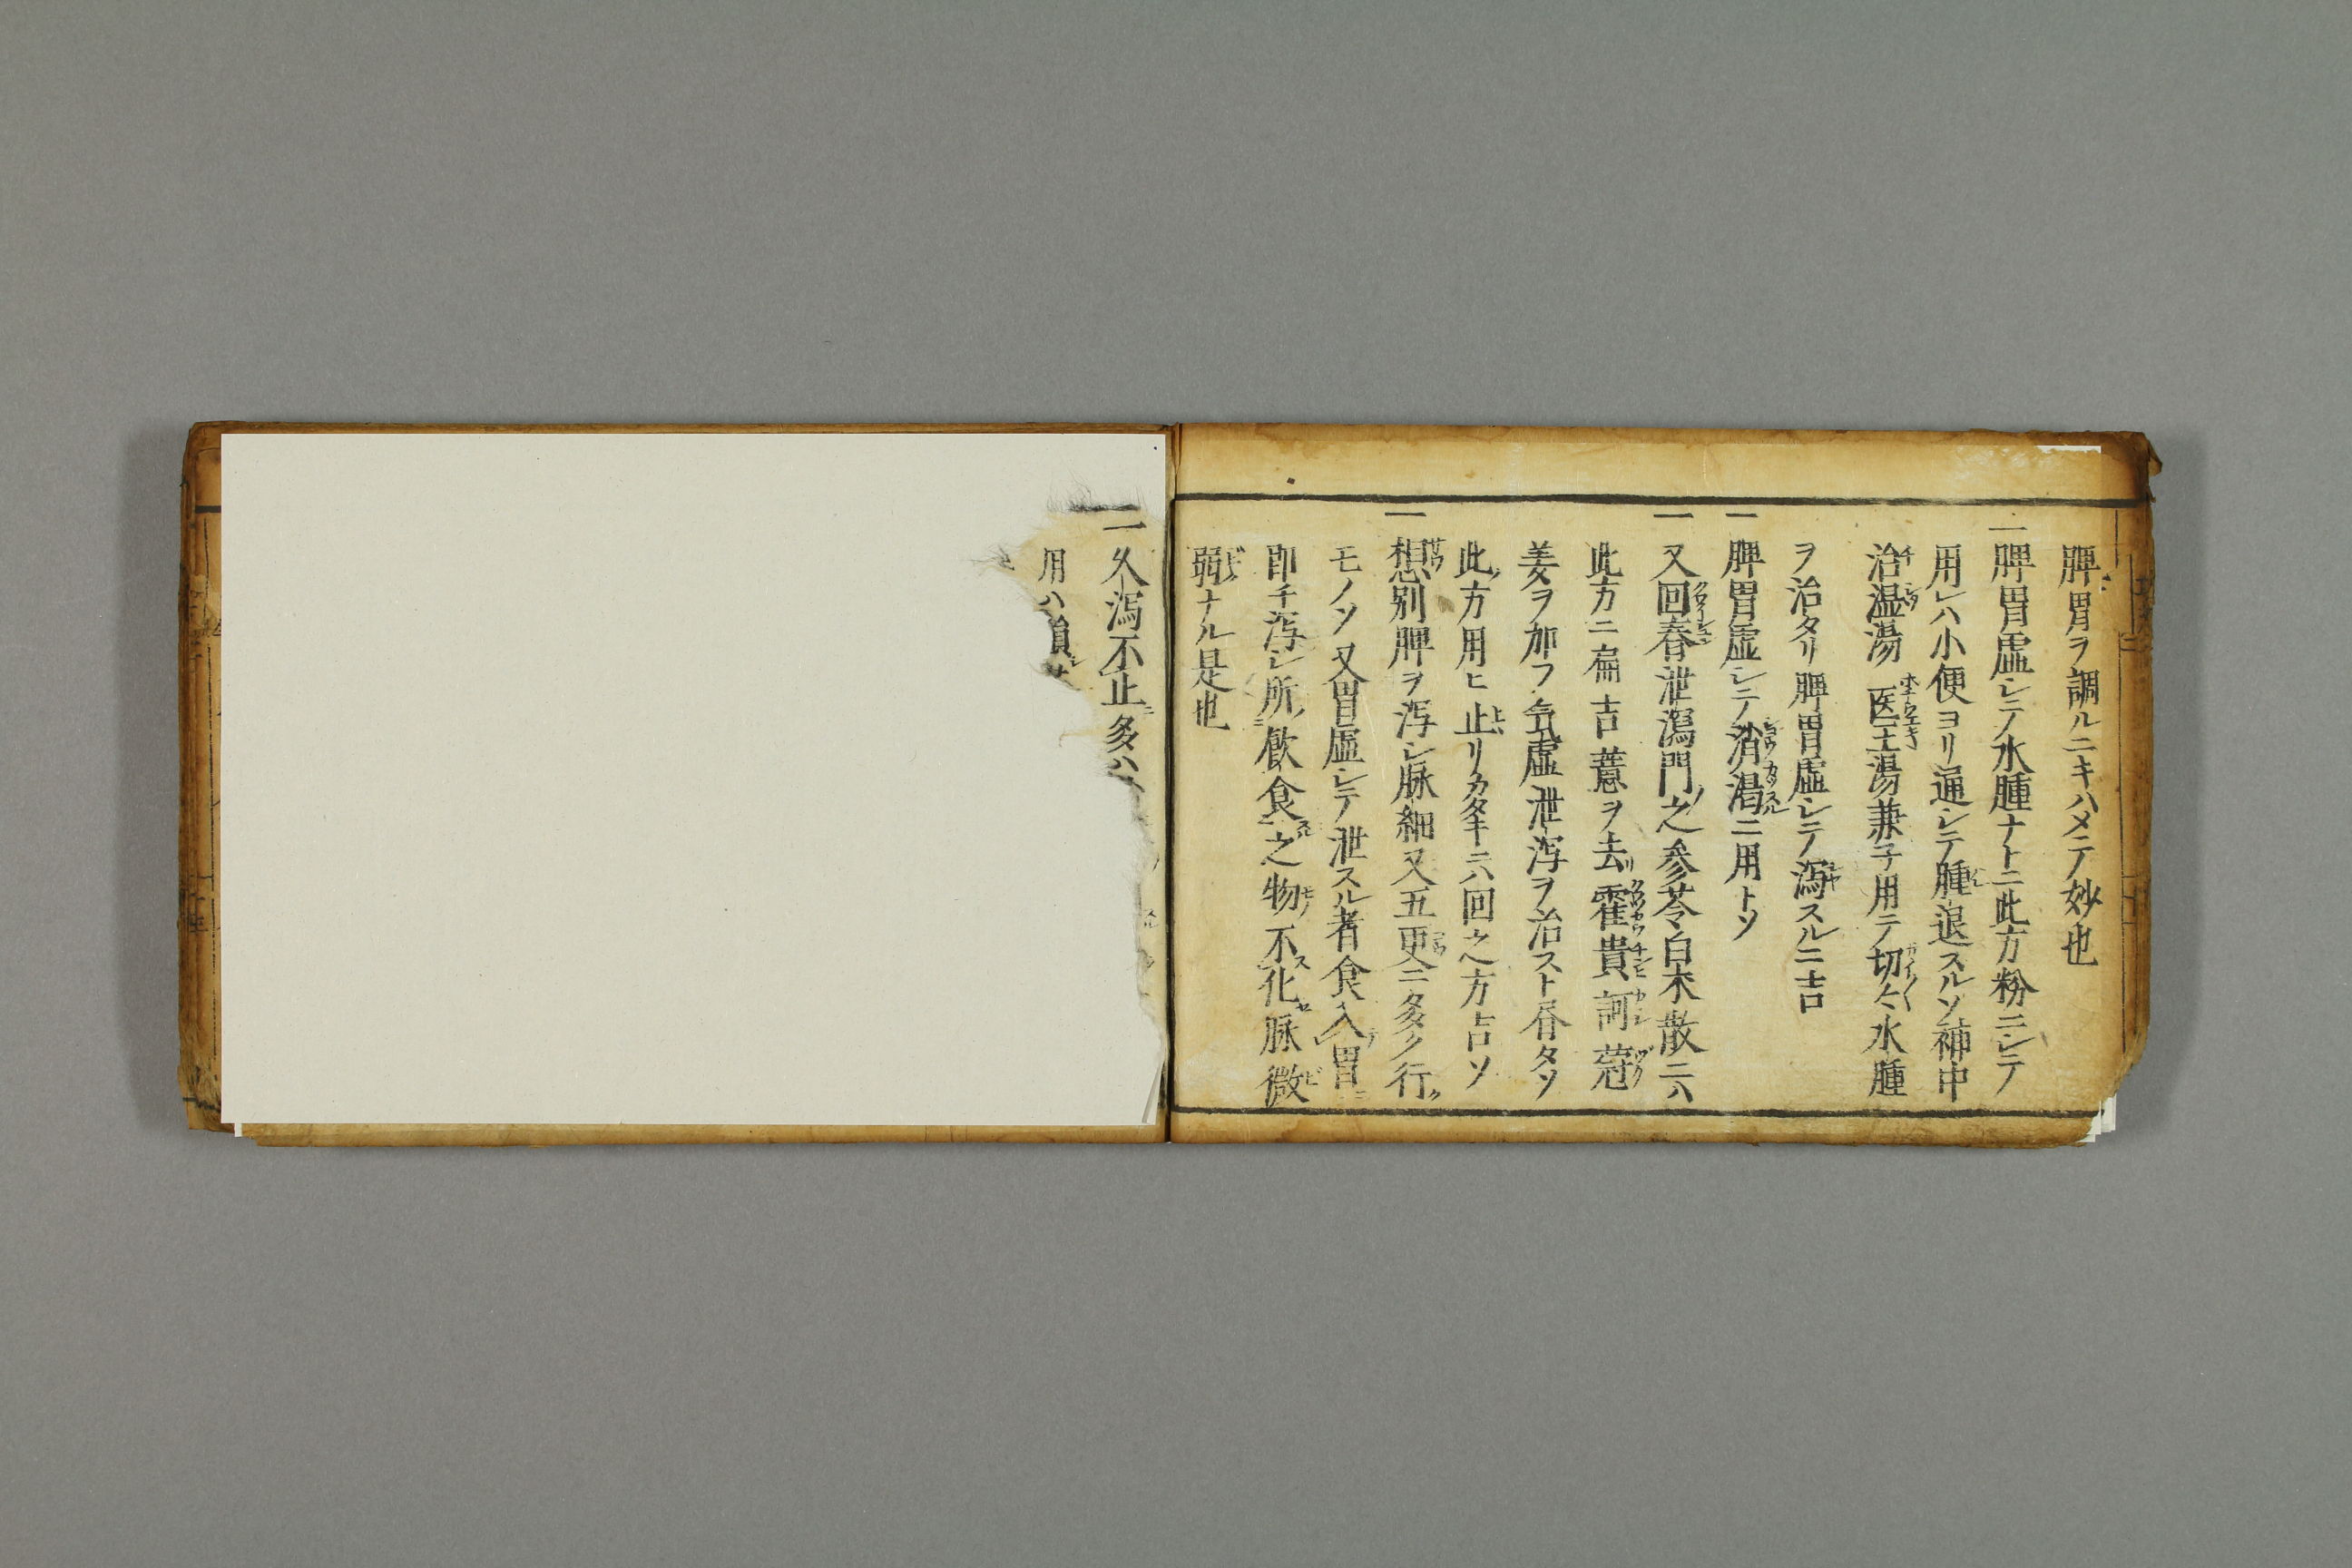 脾胃ヲ調ルニキハメテ妙也
一脾胃虚シテ水腫ナトニ此方粉ニシテ
用レハ小便ヨリ通シテ腫退スルソ補中
治湿湯 医王湯兼子用テ切々水腫
ヲ治タリ脾胃虚シテ瀉スルニ吉
一脾胃虚シテ消渇ニ用トソ
一又回春泄瀉門之参苓白朮散ニハ
此方ニ扁吉薏ヲ去霍貴訶蔲
姜ヲ加フ気虚泄泻ヲ治スト呑タソ
此方用ヒ止リカタキニハ回之方吉ソ
一想別脾ヲ泻シ脉細又五更ニ多ク行
モノソ又胃虚シテ泄スル者食入胃
即チ泻シ所飲食之物不化脉微
弱ナル是也
一久瀉不止多ハ
用ハ